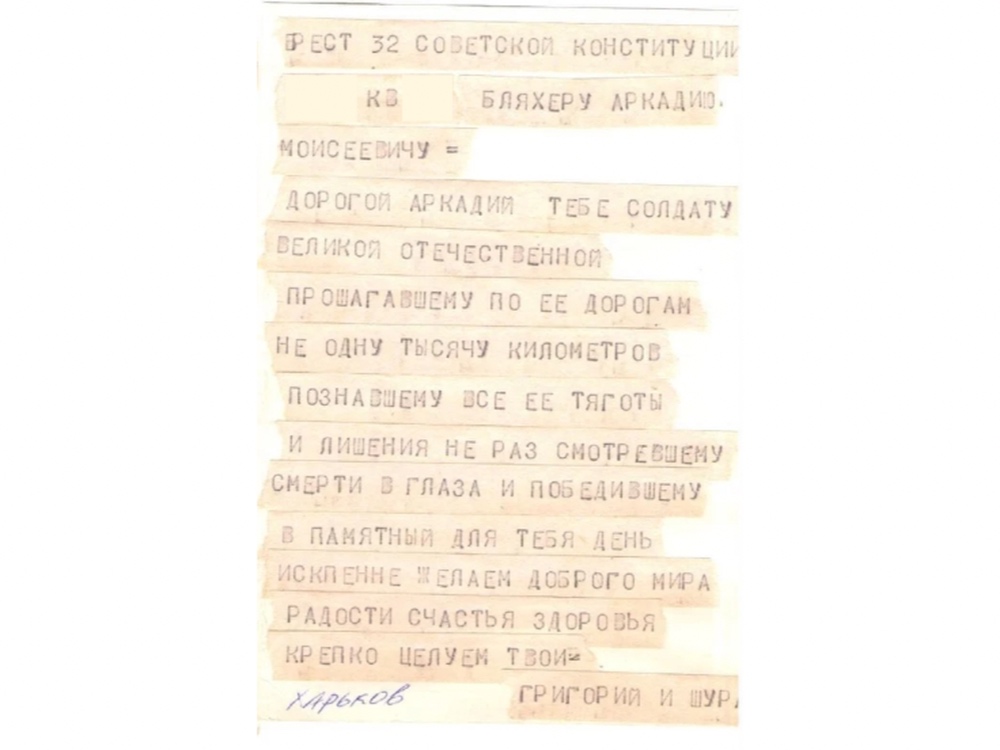 БРЕСТ 32 СОВЕТСКОЙ КОНСТИТУЦИИ
КВ БЛЯХЕРУ АРКАДИЮ.
МОИСЕЕВИЧУ =
ДОРОГОЙ АРКАДИЙ ТЕБЕ СОЛДАТУ
ВЕЛИКОЙ ОТЕЧЕСТВЕННОЙ
ПРОШАГАВШЕМУ ПО ЕЕ ДОРОГАМ
НЕ ОДНУ ТЫСЯЧУ КИЛОМЕТРОВ
ПОЗНАВШЕМУ ВСЕ ЕЕ ТЯГОТЫ
И ЛИШЕНИЯ НЕ РАЗ СМОТРЕВШЕМУ
СМЕРТИ В ГЛАЗА И ПОБЕДИВШЕМУ
В ПАМЯТНЫЙ ДЛЯ ТЕБЯ ДЕНЬ
ИСКПЕННЕ ЖЕЛАЕМ ДОБРОГО МИРА
РАДОСТИ СЧАСТЬЯ ЗДОРОВЬЯ
КРЕПКО ЦЕЛУЕМ ТВОИ=
ГРИГОРИЙ И ШУРА
ХАРЬКОВ